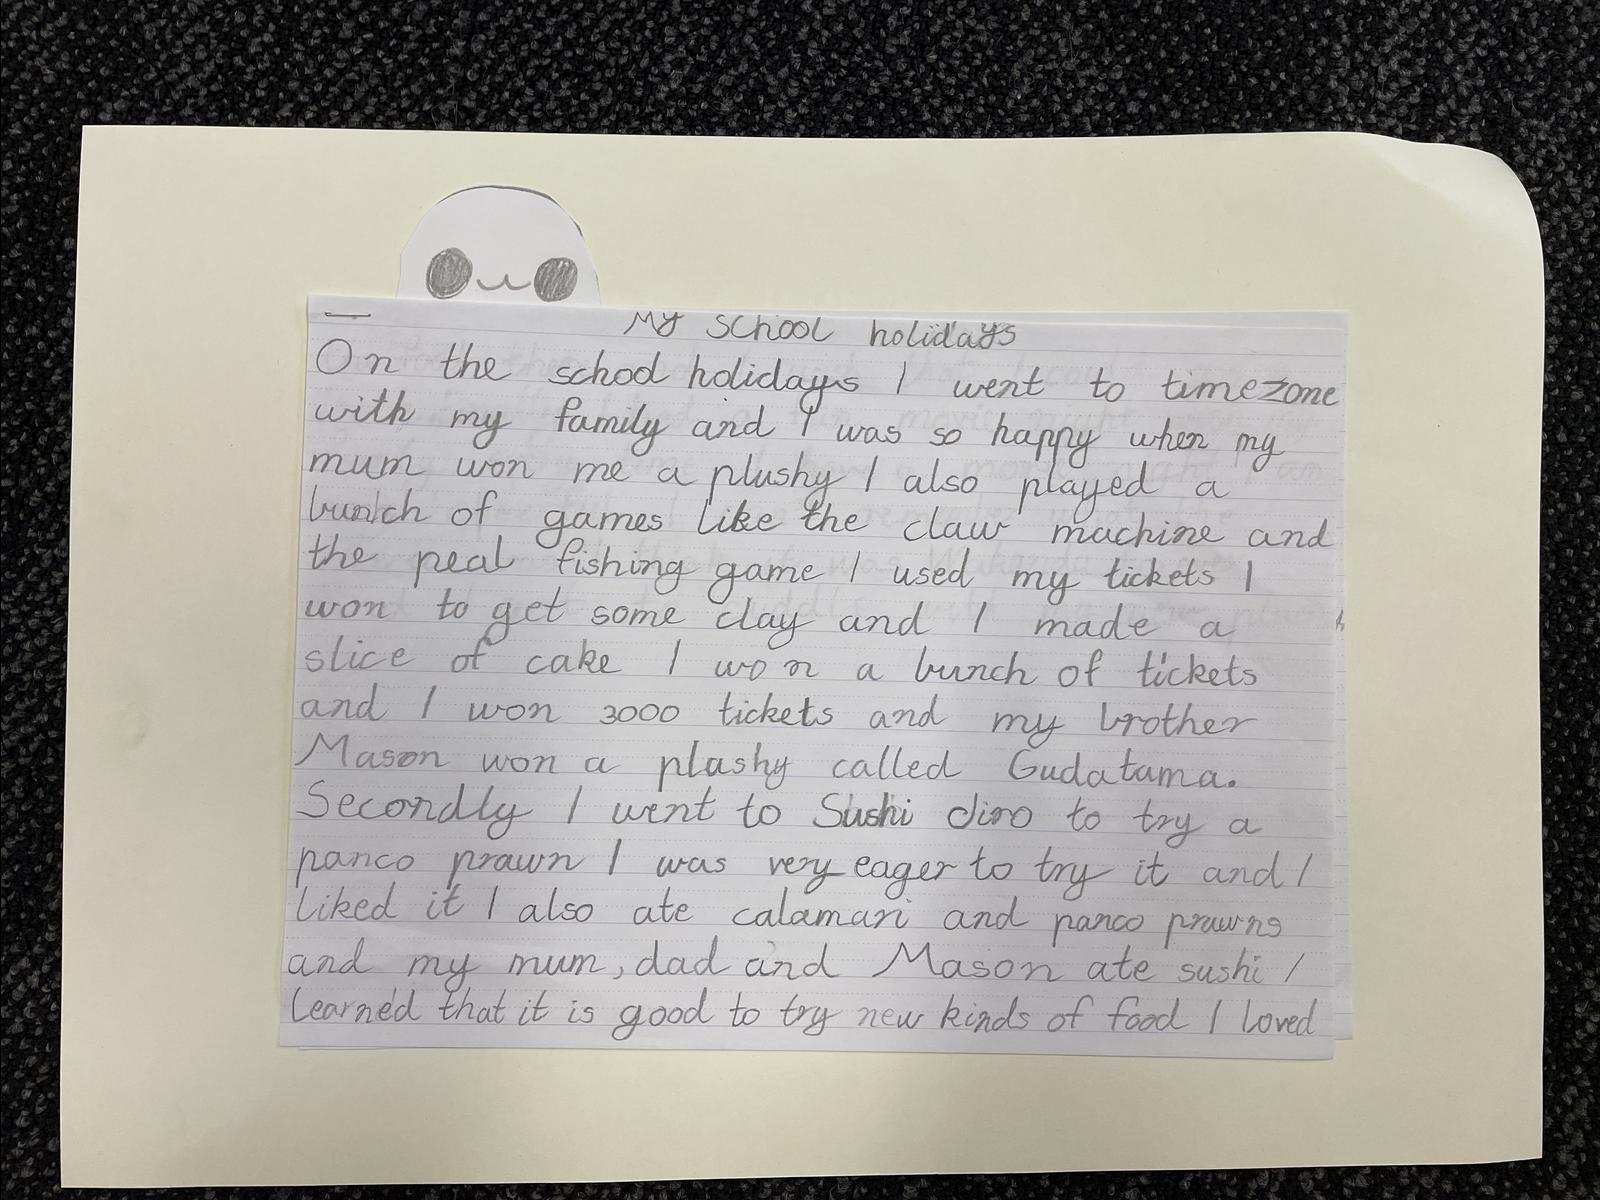 My school holidays
On the school holidays I went to timezone
with my family and I was so happy when my
mum won me a plushy I also played a
bunch of games like the claw machine and
the peal fishing game I used my tickets I
won to get some clay and I made a
slice of cake I won a bunch of tickets
and I won 3000 tickets and my brother
Mason won a plashy called Gudatama.
Secondly I went to Sushi diro to try a
panco prawn I was very eager to try it and I
liked it I also ate calamari and panco prawns
and my mum, dad and Mason ate sushi I
learned that it is good to try new kinds of food I loved